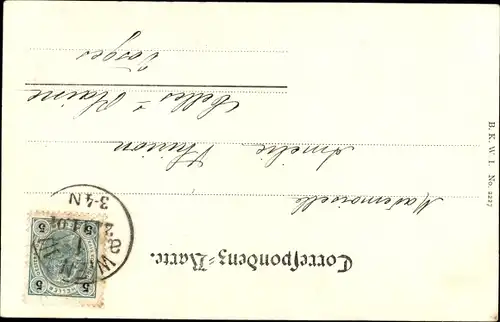 Correspondenz-Karte.
Mademoiselle
Amélie Thirion
Celles s/ Plaine
Vosges
B. K. W. I. No. 2227
5 5
5 5
HELLER
3-4N